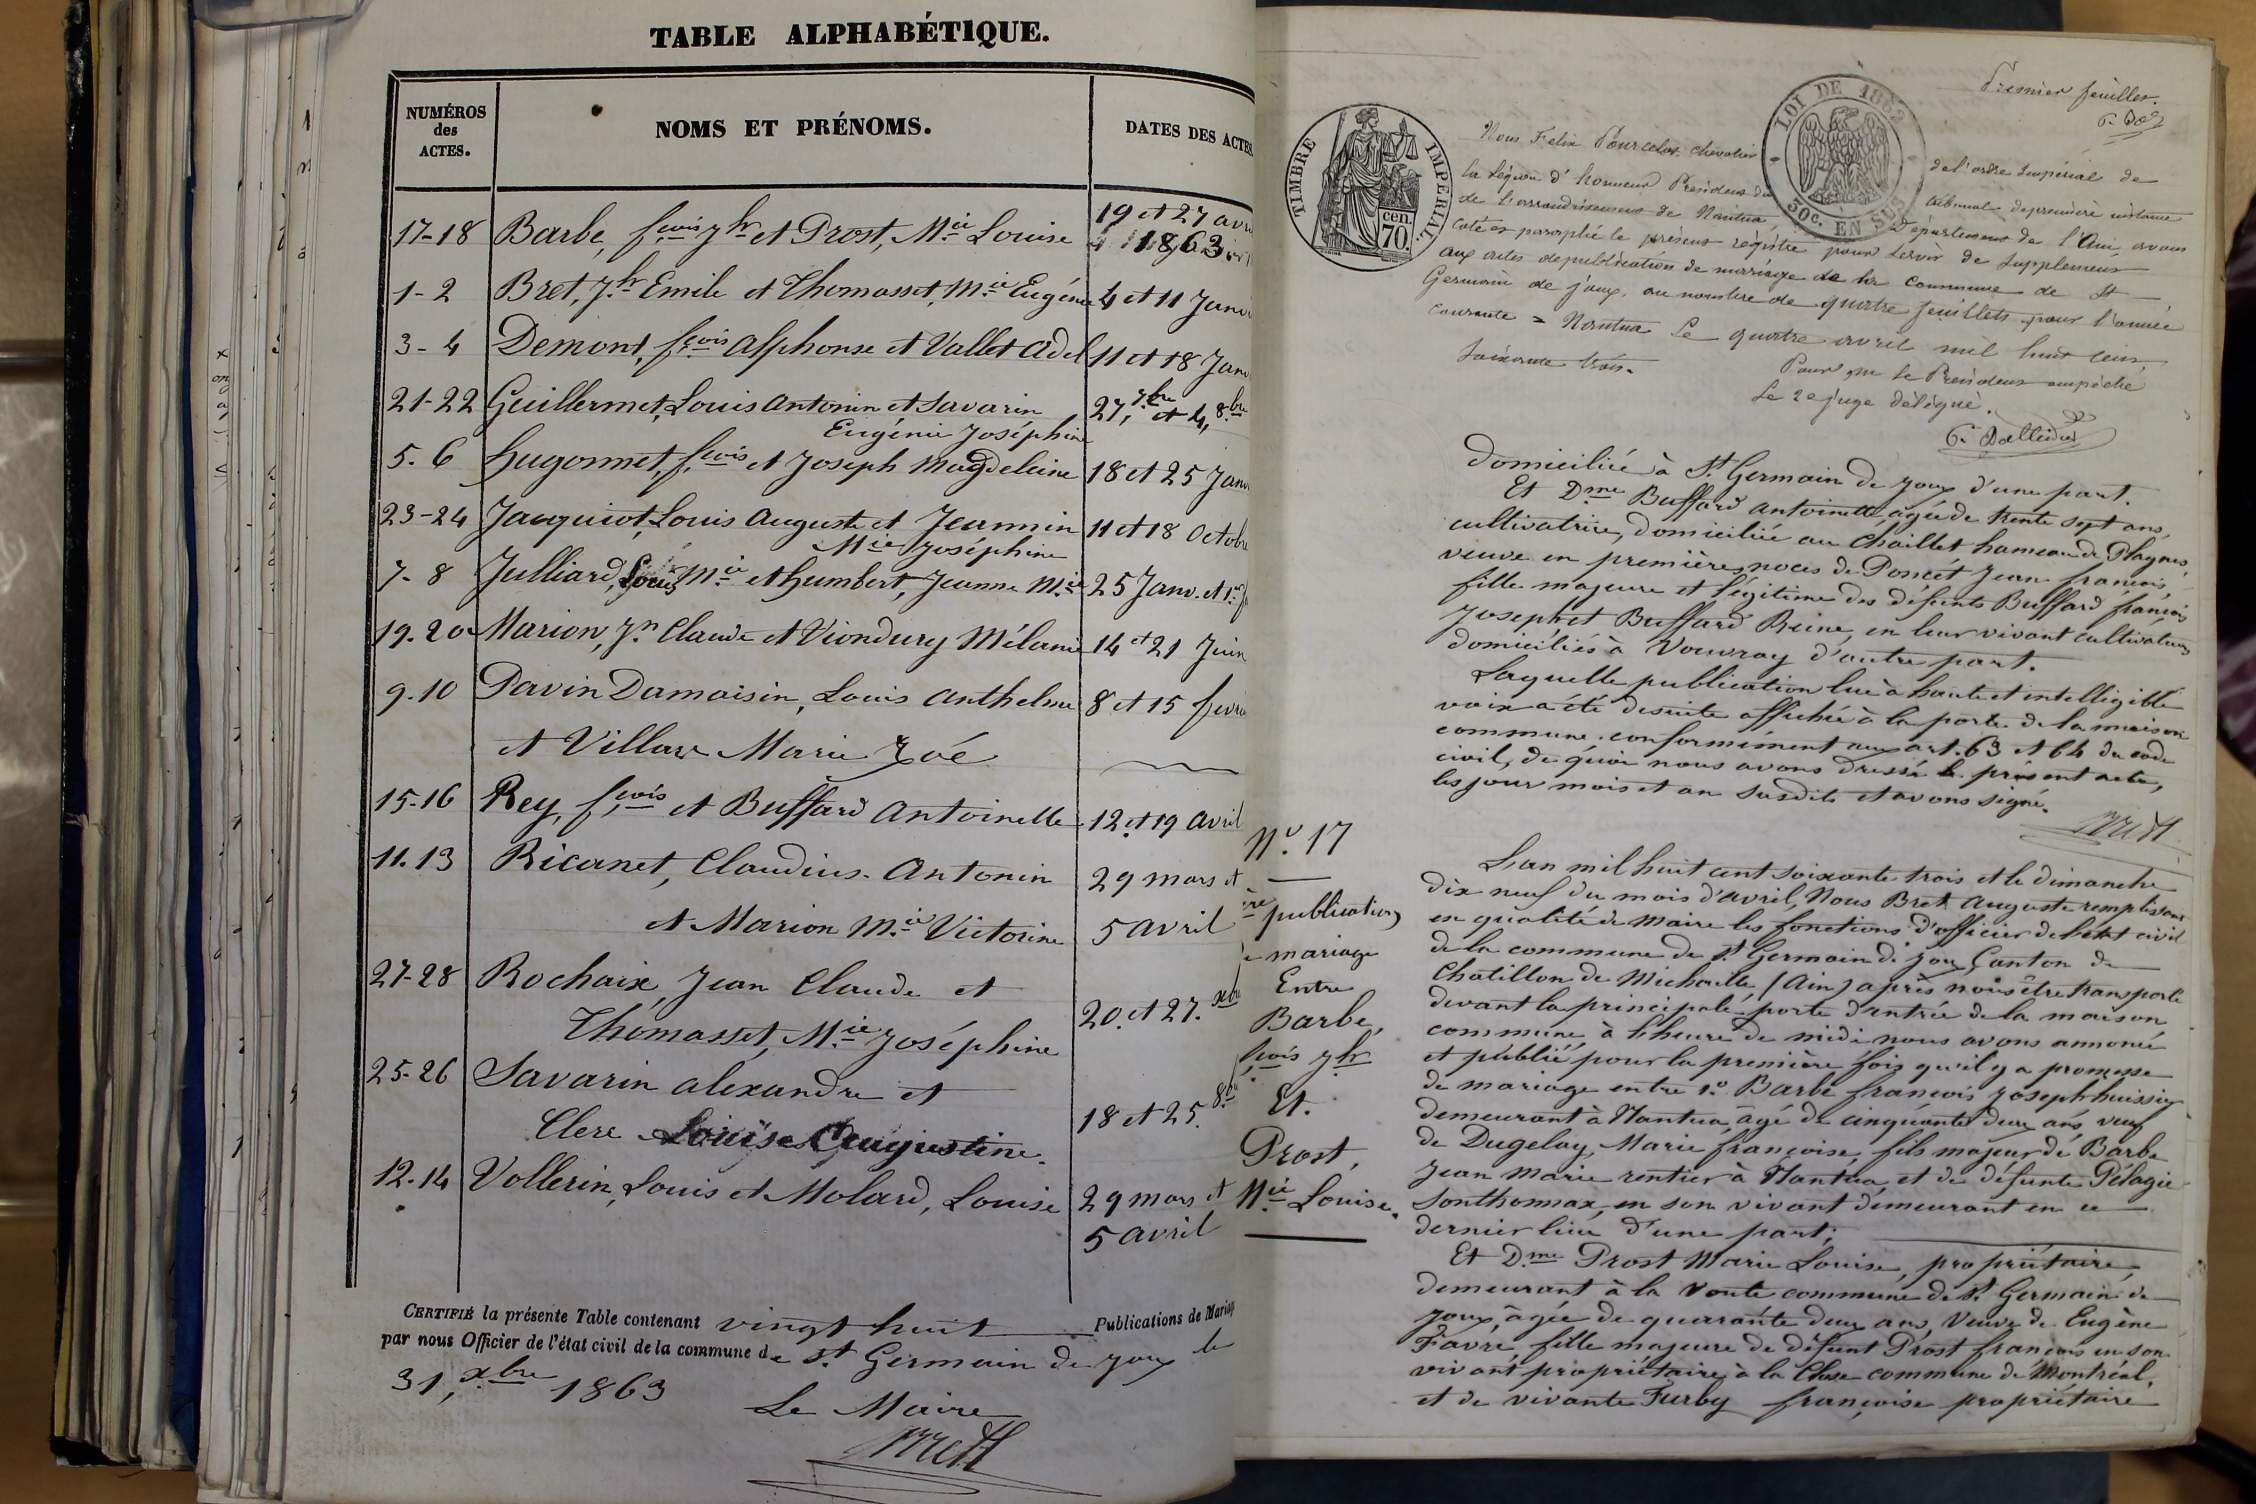 TABLE ALPHABÉTIQUE.
NUMÉROS
des
ACTES.
NOMS ET PRÉNOMS.
DATES DES ACTES
17-18 Barbe, fçois Jh et Prost, Mie Louise 19 et 27 avr
1863
1-2 Bret, Jh Emile et Thomasset, Mie Eugénie 4 et 11 Janv
3-4 Demont, fçois Alphonse et Vallet Adel 11 et 18 Janv
21-22 Guillermet, Louis Antonin et Savarin 27, 7bre et 4, 8bre
Eugénie Joséphine
5.6 Hugonnet, fçois et Joseph Magdeleine 18 et 25 Janv
23-24 Jacquiot, Louis Auguste et Jeannin 11 et 18 Octobre
Mie Joséphine
7-8 Julliard, Louis Mie et Humbert, Jeanne Mie 25 Janv. et 1er f
19.20 Marion, Jn Claude et Viondury Mélanie 14 et 21 Juin
9.10 Pavin Damoisin, Louis Anthelme 8 et 15 fevri
et Villars Marie Zoé
15-16 Rey, fçois et Buffard Antoinette 12 et 19 Avril
11.13 Ricanet, Claudius-Antonin 29 mars et
et Marion Mie Victorine 5 avril
27-28 Rochaix, Jean Claude et
Thomasset, Mie Joséphine 20. et 27. xbre
25-26 Savarin Alexandre et
Clerc Louise Augustine. 18 et 25. 8bre
12-14 Vollerin, Louis et Molard, Louise 29 mars et
5 avril
CERTIFIÉ la présente Table contenant vingt huit Publications de Mariag
par nous Officier de l'état civil de la commune de St Germain de Joux le
31, xbre 1863
Le Maire
Bret
Premier feuillet.
TIMBRE IMPÉRIAL.
cen.
70.
LOI DE 1862
50c. EN SUS
Nous Felix Pourcelot chevalier de l'ordre Impérial de
la Légion d'honneur Président du tribunal de premiere instance
de l'arrondissement de Nantua, Département de l'Ain, avons
coté et paraphé le présent régistre pour servir de supplément
aux actes de publication de mariage de la commune de St
Germain de joux, au nombre de quatre feuillets pour l'année
courante = Nantua le quatre avril mil huit cent
soixante trois.
Pour Mr le President empêché
Le 2e juge délégué.
domiciliée à St Germain de Joux d'une part.
Et Dme Buffard Antoinette, agée de trente sept ans,
cultivatrice, domiciliée au Chaillet hameau de Plagnes,
veuve en premières noces de Poncet Jean françois,
fille majeure et légitime des défunts Buffard françois
Joseph et Buffard Reine, en leur vivant cultivateurs
domiciliés à Vouvray d'autre part.
Laquelle publication lue à haute et intelligible
voix a été desuite affichée à la porte de la maison
commune conformément aux art. 63 et 64 du code
civil, de quoi nous avons dressé le présent acte,
les jour mois et an susdits et avons signé.
Bret
No. 17
ère publication
de mariage
Entre
Barbe,
fçois Jh
Et.
Prost,
Mie Louise.
L'an mil huit cent soixante trois et le dimanche
dix neuf du mois d'avril, Nous Bret Auguste remplissant
en qualité de Maire les fonctions d'officier de l'etat civil
de la commune de St Germain de Joux, Canton de
Chatillon de Michaille (Ain) après nous être transporté
devant la principale porte d'entrée de la maison
commune, à l'heure de midi nous avons annoncé
et publié pour la première fois qu'il y a promesse
de mariage entre 1o. Barbe françois Joseph huissier
demeurant à Nantua, âgé de cinquante deux ans, veuf
de Dugelay, Marie françoise, fils majeur de Barbe
Jean Marie rentier à Nantua, et de défunte Pélagie
Sonthonnax, en son vivant demeurant en ce
dernier lieu d'une part;
Et Dme Prost Marie Louise, propriétaire,
demeurant à la Voute commune de St Germain de
Joux, âgée de quarante deux ans, Veuve de Eugène
Favre, fille majeure de défunt Prost françois en son
vivant propriétaire à la Cluse commune de Montréal,
et de vivante Furby françoise propriétaire